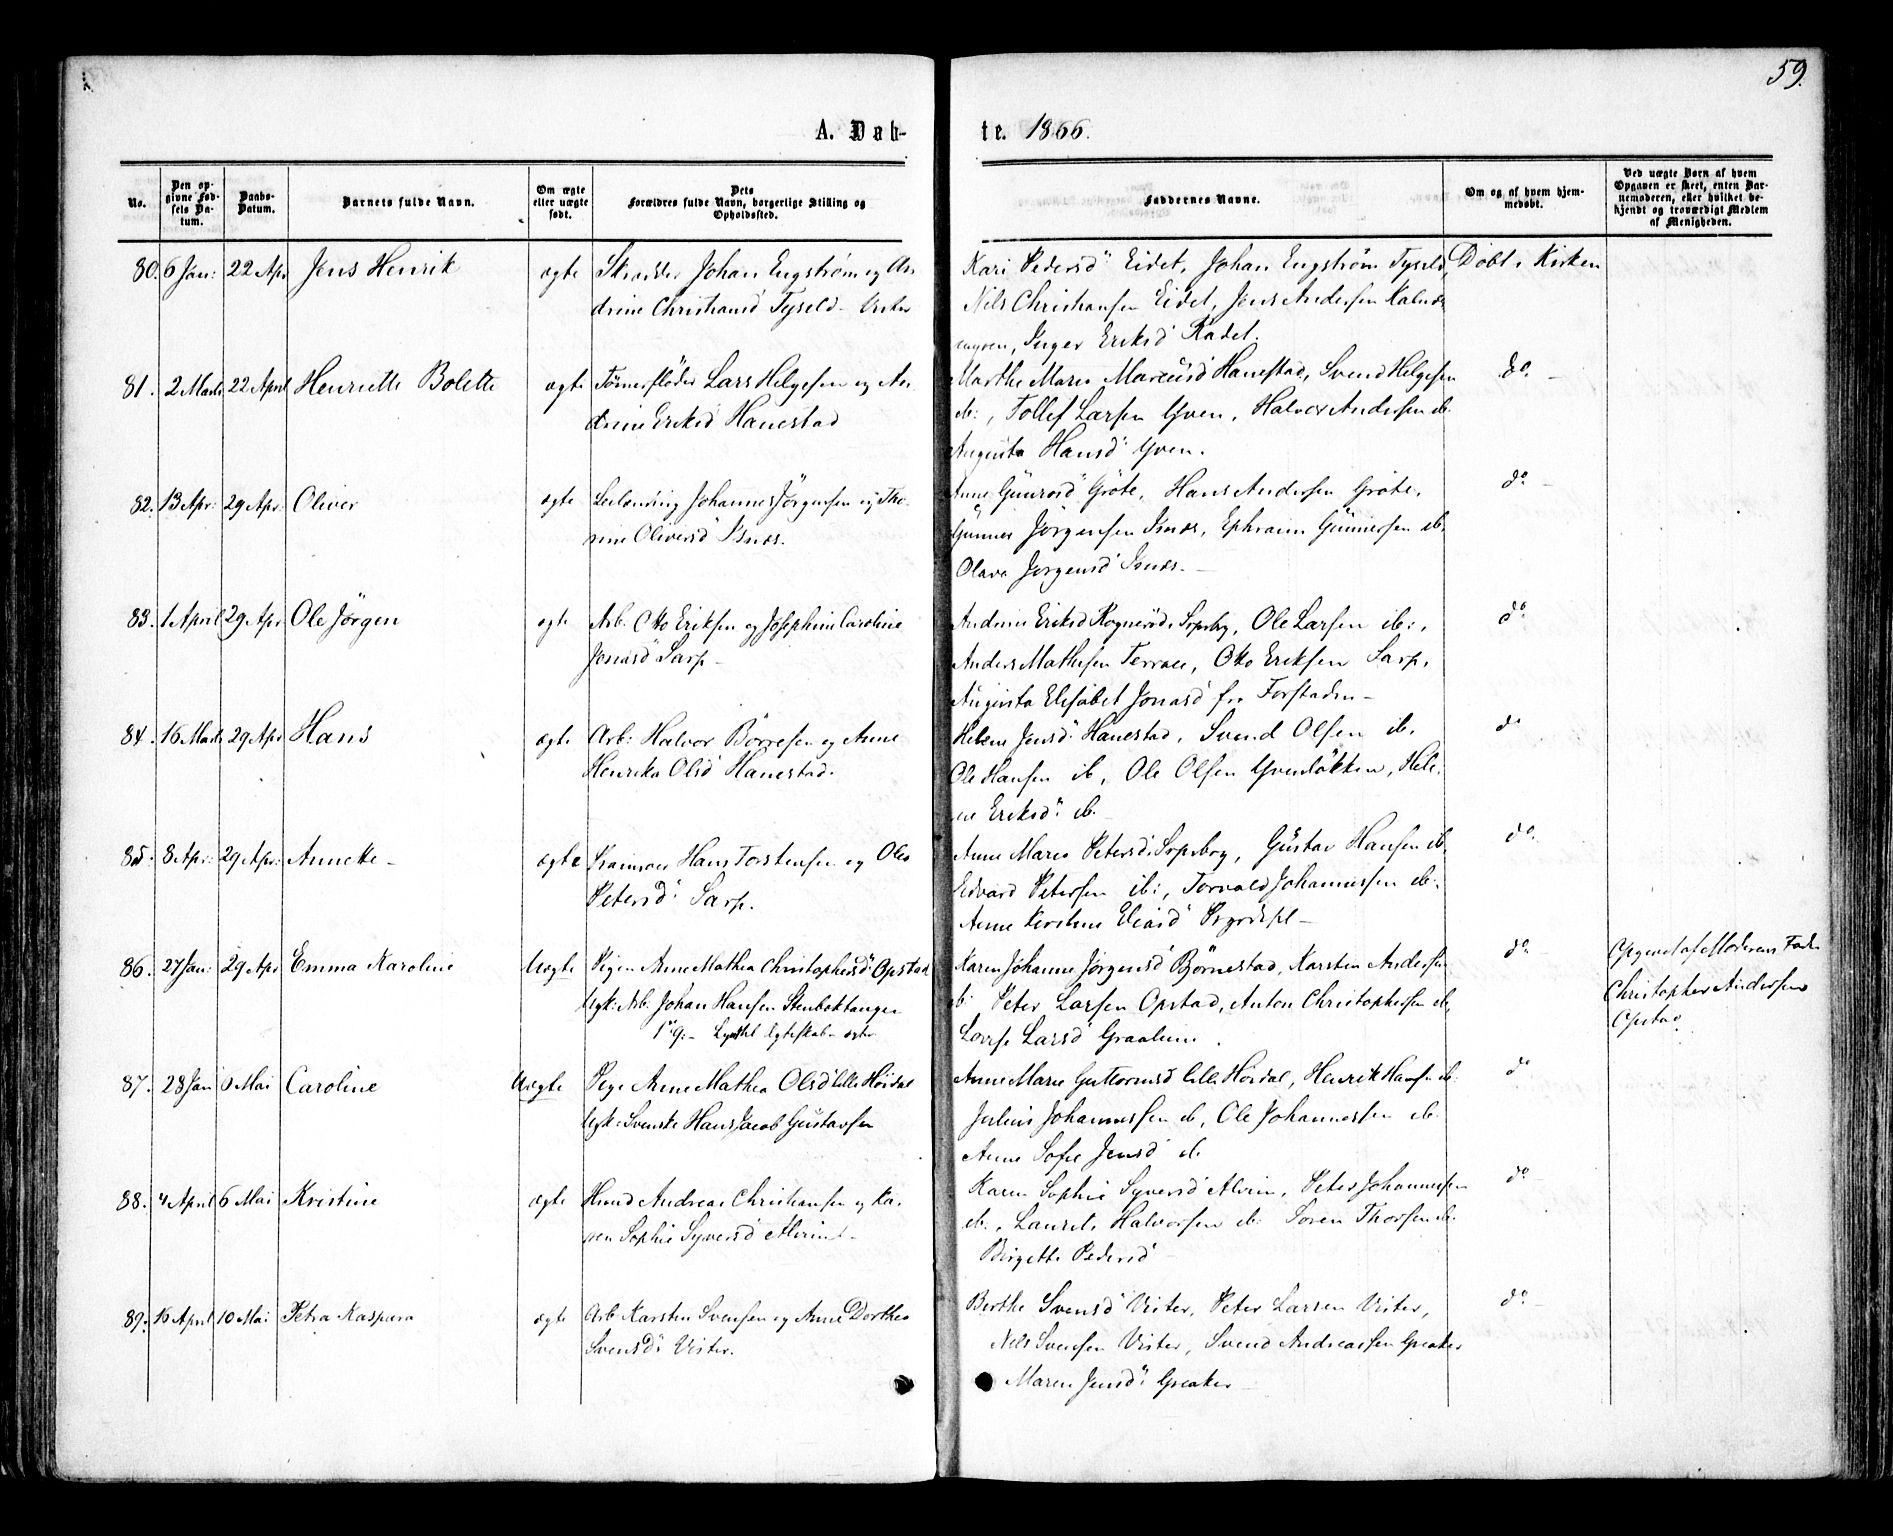 59.
A. Døb-
te. 1866.
No.
Den op-
givne Fød-
sels Da-
tum.
Daabs-
Datum.
Barnets fulde Navn.
Om ægte
eller uægte
født.
Dets
Forældres fulde Navn, borgerlige Stilling og
Opholdssted.
Faddernes Navne.
Om og af hvem hjem-
medøbt.
Ved uægte Børn af hvem
Opgaven er skeet, enten Bar-
nemoderen, eller hvilket be-
kjendt og troværdigt Medlem
af Menigheden.
80. 6 Jan: 22 Apr Jens Henrik ægte Skrædder Johan Engstrøm og An
drine Christiansd Tyseld - Vister
Kari Pedersd Eidet, Johan Engstrøm Tyseld, Døbt i Kirken
Nils Christiansen Eidet, Jens Andersen Kalnæs
myren, Inger Eriksd Radet.
81. 2 Marts 22 April Henriette Bolette ægte Tømmerfløder Lars Helgesen og An
drine Eriksd Hanestad
Marthe Maria Marcusd Hanestad, Svend Helgesen do. -
ib:, Tollef Larsen Yven, Halvor Andersen ib.
Augusta Hansd Yven.
82. 13 Apr: 29 Apr: Oliver ægte Leilænding Johannes Jörgensen og Tho-
rine Oliversd Isnæs.
Anne Gunrosd Gröte, Hans Andersen Gröte, do -
Gunner Jörgensen Isnæs, Ephraim Gunnersen ib.
Olava Jörgensd Isnæs. -
83. 1 April 29 Apr Ole Jörgen ægte Arb. Otto Eriksen og Josephine Caroline
Jonasd Sarp -
Andrine Eriksd Rognerød i Sarpsbg, Ole Larsen ib:, do
Anders Mathisen Terrace, Otto Eriksen Sarp,
Augusta Elisabet Jonasd fra Forstaden -
84. 16 Marts 29 Apr Hans ægte Arb: Halvor Börresen og Anne
Henrika Olsd Hanestad.
Helene Jensd Hanestad, Svend Olsen ib, do
Ole Hansen ib, Ole Olsen Yvenlökken, Hele-
ne Eriksd ib.
85. 8 Apr: 29 Apr: Annette - ægte Hans Torstensen og Olea
Petersd Sarp.
Anne Maria Petersd i Sarpsborg, Gustav Hansen ib, do.
Edvard Petersen ib:, Torvald Johannessen ib:.
Anne Kirstine Eliasd -
86. 27 Jan: 29 Apr Emma Karoline Uægte Pigen Anne Mathea Christophersd Opstad
Ugk: Arb. Johan Hansen Stenboktangen
1ste G:
Karen Johanne Jörgensd Börnestad, Karsten Andersen do - Opgivet af Moderens Fader
ib. Peter Larsen Opstad, Anton Christophersen ib, Christopher Andersen
Lovise Larsd Graalum. Opstad.
87. 28 Jan 6 Mai Caroline Uægte Pige Anne Mathea Olsd Lille Höidal
Ugk: Svenske Hans Jacob Gustavsen
Anne Marie Guttormsd Lille Hördal, Henrik Hansen ib. do
Julius Johannessen ib, Ole Johannessen ib.
Anne Sofie Jensd ib
88. 4 April 6 Mai Kristine ægte Huusmd Andreas Christiansen og Ka-
ren Sophie Syversd Alvim -
Karen Sophie Syversd Alvim, Peter Johannessen do -
ib., Laurits Halvorsen ib. Soren Thorsen ib.
Birgette Pedersd -
89. 16 April 10 Mai Petra Kaspara ægte Arb Karsten Svensen og Anne Dorthea
Svensd Vister.
Berthe Svensd Vister, Peter Larsen Vister, do -
Nils Svensen Vister, Svend Andreassen Greaker
Maren Jensd Greaker -